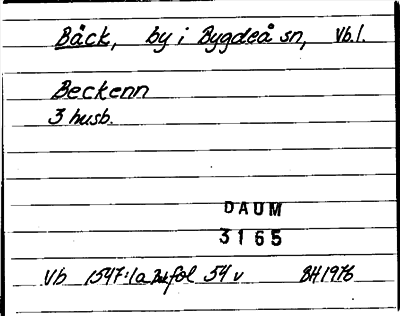 Bäck, by i Bygdeå sn, Vb.l.
Beckenn
3 husb.
DAUM
3165
Vb 1547:1a Bk fol 54 v BH 1976